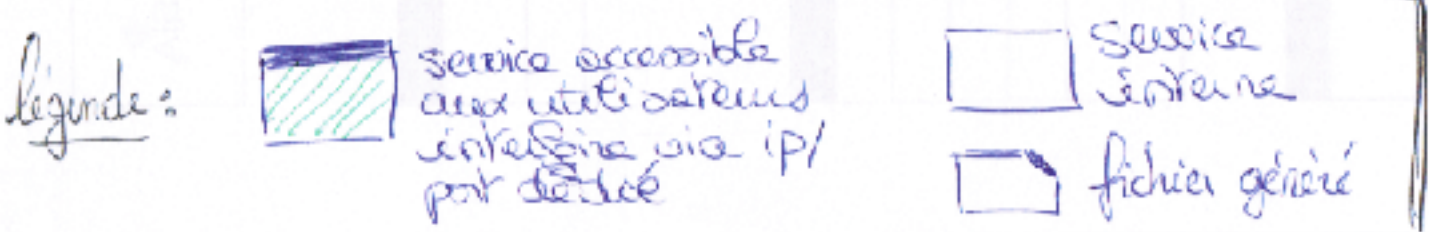 légende :
service accessible
aux utilisateurs
interface via ip/
port dédié
service
interne
fichier généré